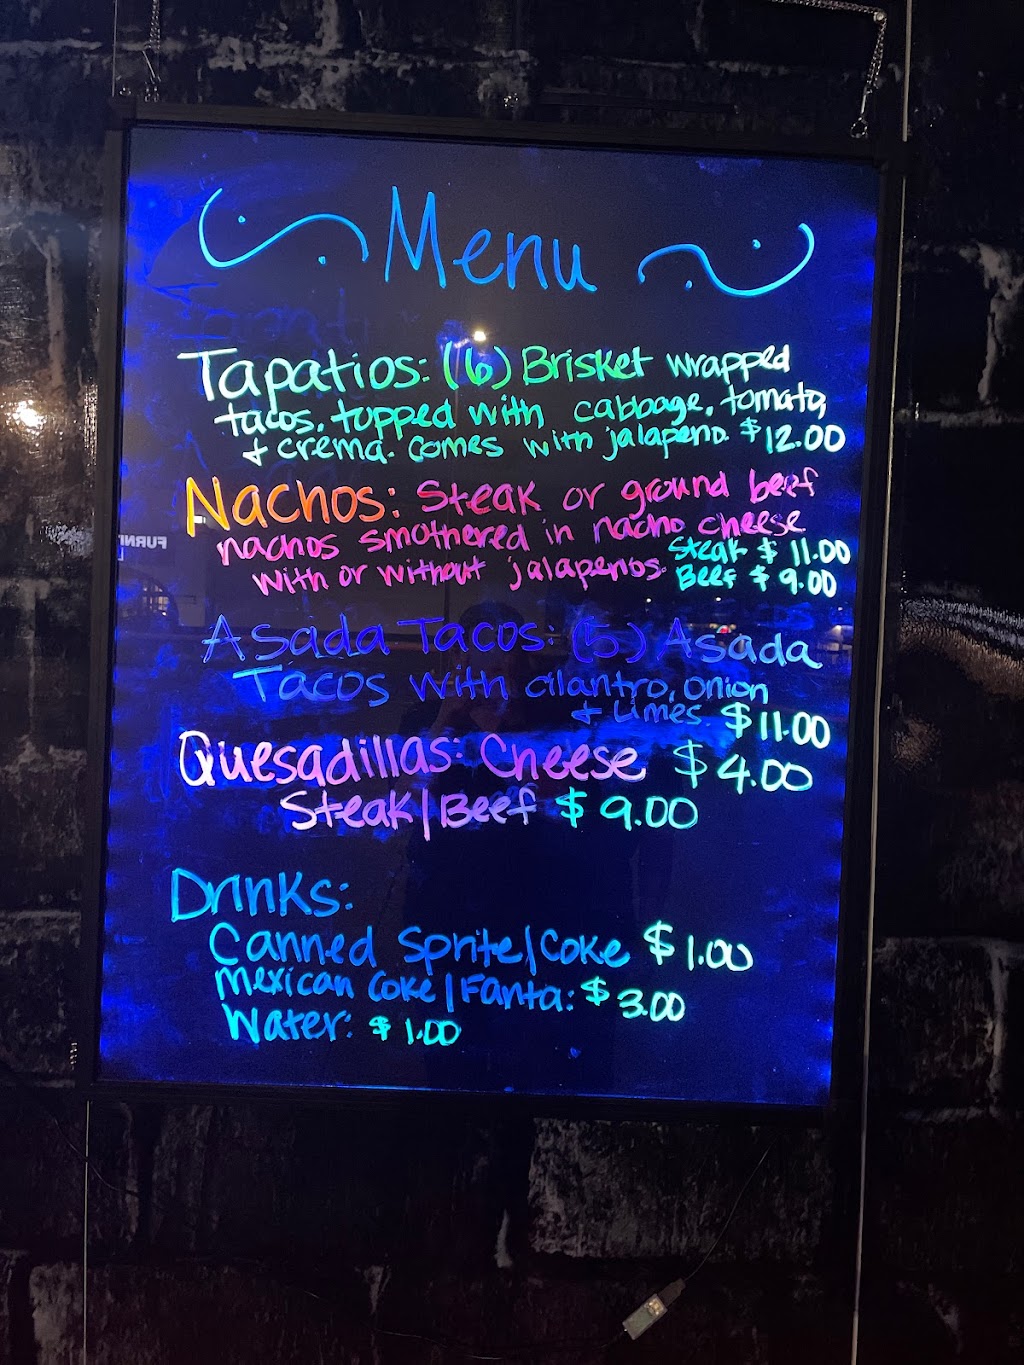 Menu
Tapatios: (6) Brisket wrapped
tacos. topped with cabbage, tomato,
& crema. comes with jalapeno. $12.00
Nachos: Steak or ground beef
nachos smothered in nacho cheese
with or without jalapenos. Steak $11.00
Beef $9.00
Asada Tacos: (5) Asada
Tacos with cilantro, onion
& Limes. $11.00
Quesadillas: Cheese $4.00
Steak/Beef $9.00
Drinks:
Canned Sprite/Coke $1.00
Mexican Coke/Fanta: $3.00
Water: $1.00